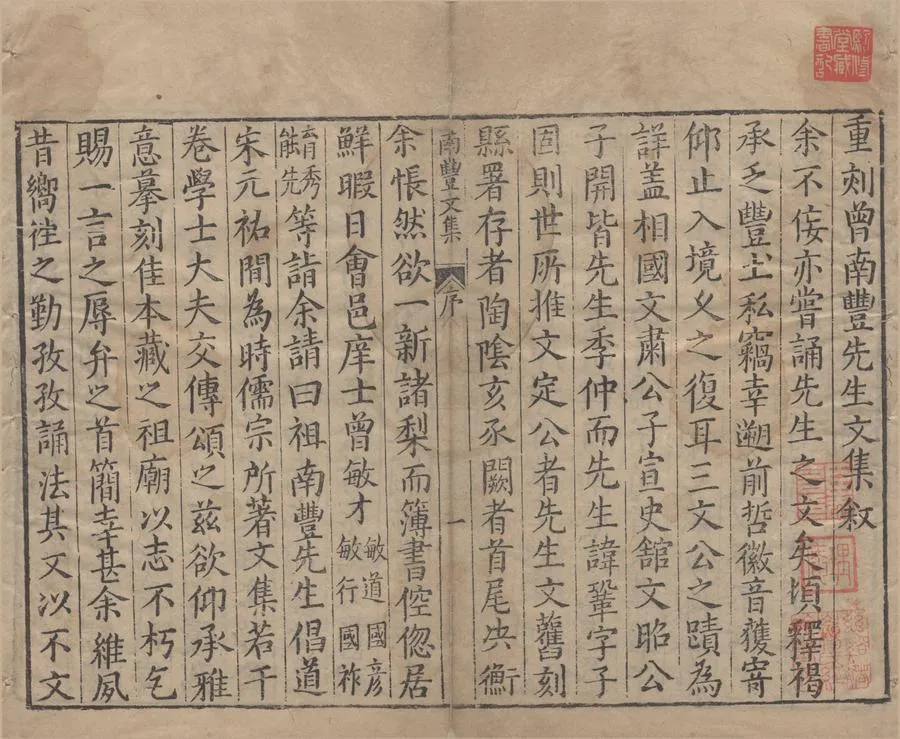 重刻曾南豐先生文集敘
余不佞亦嘗誦先生之文矣頃釋褐
承乏豐土私竊幸遡前哲徽音獲寄
仰止入境乂之復耳三文公之蹟為
詳蓋相國文肅公子宣史舘文昭公
子開皆先生季仲而先生諱鞏字子
固則世所推文定公者先生文舊刻
縣署存者陶陰亥豕闕者首尾决衡
南豐文集 序 一
余悵然欲一新諸梨而簿書倥偬居
鮮暇日會邑庠士曾敏才敏道國彥敏行國祚
育秀能先等請余請曰祖南豐先生倡道
宋元祐間為時儒宗所著文集若干
卷學士大夫交傳頌之茲欲仰承雅
意摹刻佳本藏之祖廟以志不朽乞
賜一言之辱弁之首簡幸甚余維夙
昔嚮往之勤孜孜誦法其又以不文